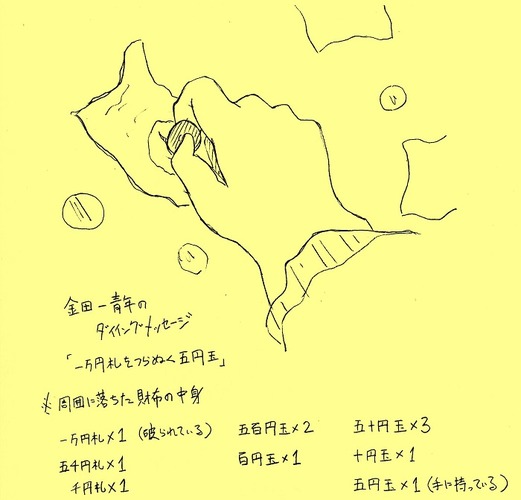 金田一青年の
ダイイングメッセージ
「一万円札をつらぬく五円玉」
※周囲に落ちた財布の中身
一万円札×1(破られている)
五千円札×1
千円札×1
五百円玉×2
百円玉×1
五十円玉×3
十円玉×1
五円玉×1(手に持っている)